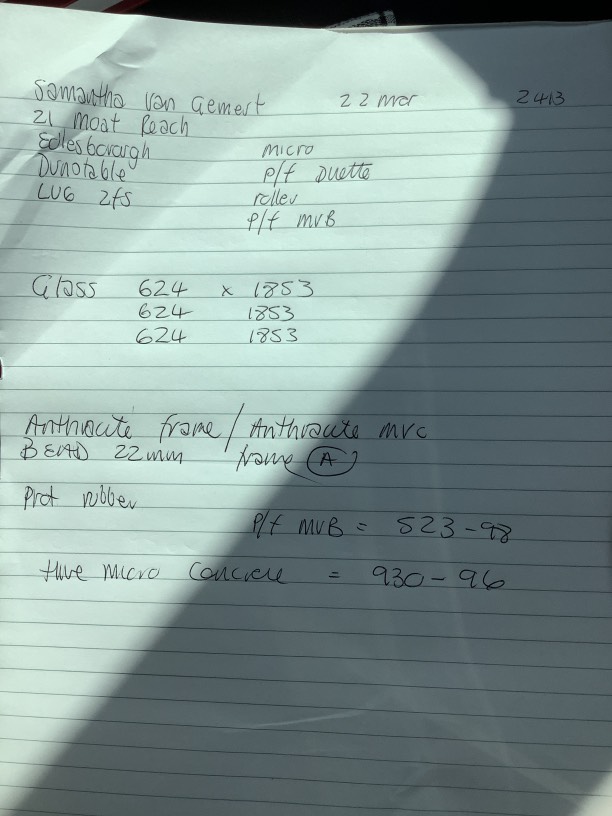 Samantha Van Gemert 22 mar 2413
21 Moat Reach
Edlesborough micro
Dunstable P/f Duette
LU6 2fs roller
P/f MVB
Glass 624 x 1853
624 1853
624 1853
Anthracite frame / Anthracite mvc
BEAD 22mm frame A
Prot rubber
P/f MVB = 523-98
Hive Micro Concrete = 930-96